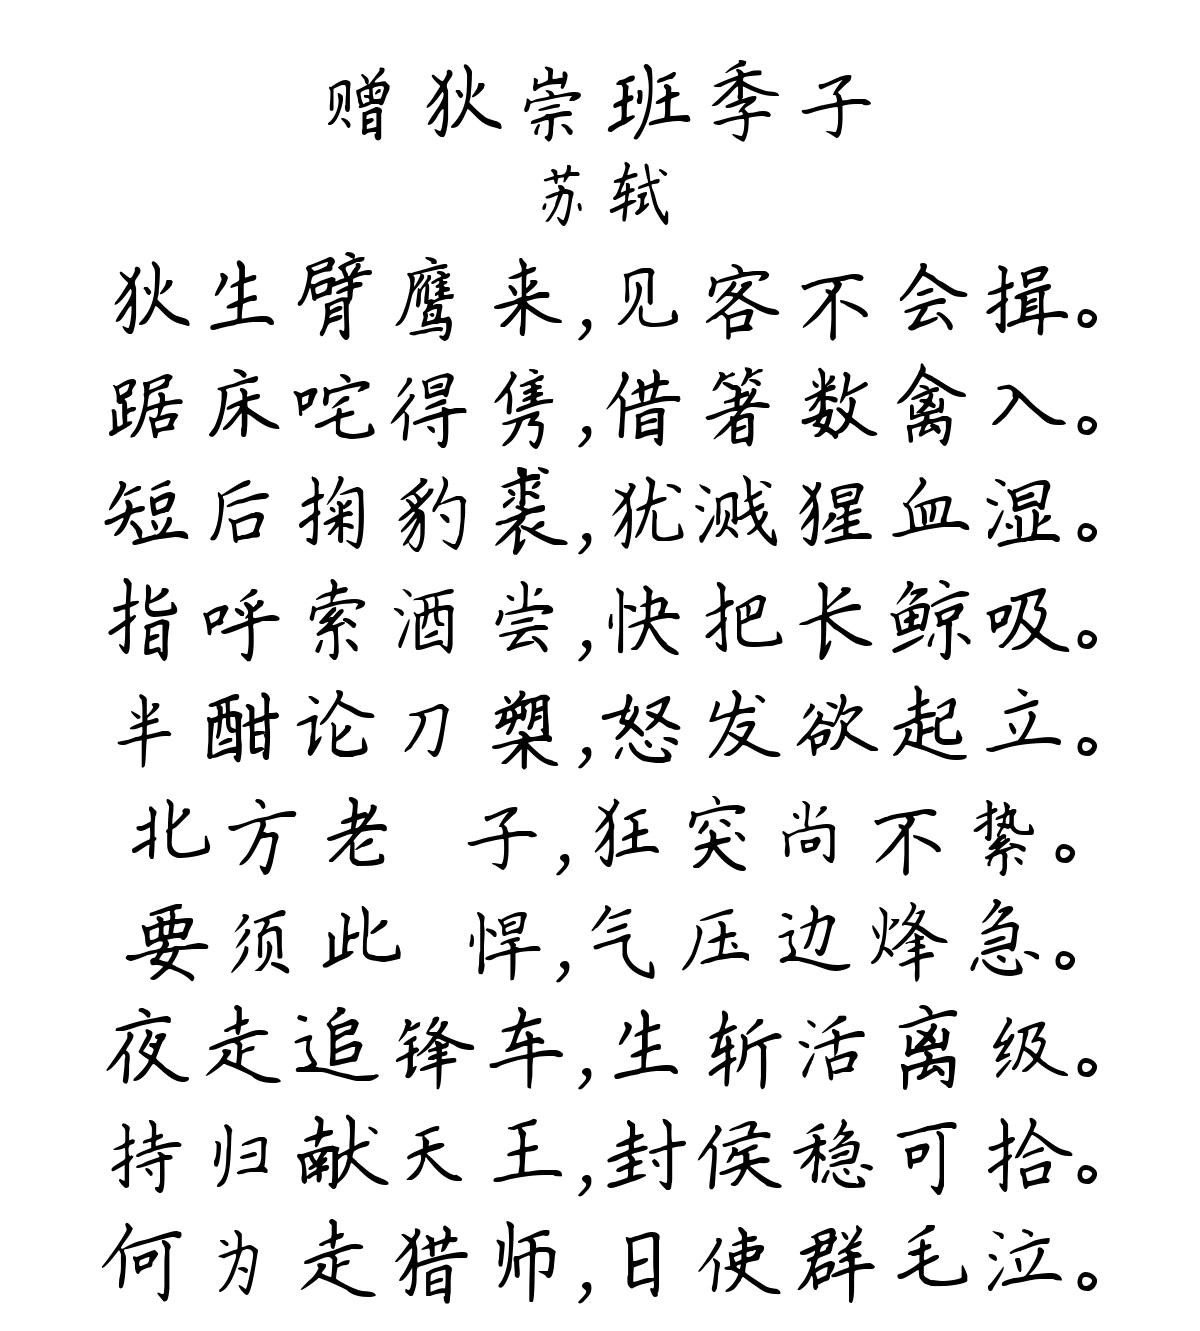 赠狄崇班季子
苏轼
狄生臂鹰来,见客不会揖。
踞床咤得隽,借箸数禽入。
短后掬豹裘,犹溅猩血湿。
指呼索酒尝,快把长鲸吸。
半酣论刀槊,怒发欲起立。
北方老 子,狂突尚不絷。
要须此 悍,气压边烽急。
夜走追锋车,生斩活离级。
持归献天王,封侯稳可拾。
何为走猎师,日使群毛泣。